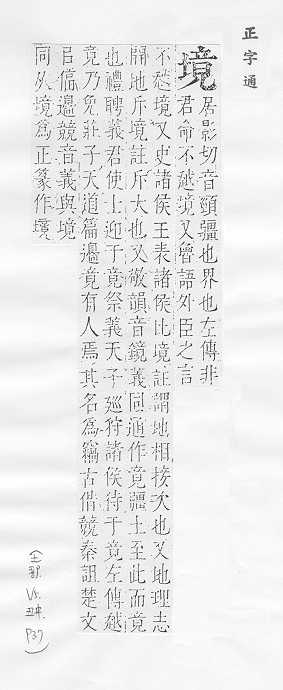 正字通
境
居影切音頸疆也界也左傳非
君命不越境又魯語外臣之言
不越境又史諸侯王表諸侯比境註謂地相接次也又地理志
開地斥境註斥大也又敬韻音鏡義同通作竟疆土至此而竟
也禮聘義君使士迎于竟祭義天子巡狩諸侯待于竟左傳越
竟乃免莊子天道篇邊竟有人焉其名為竊古借競秦詛楚文
偪邊競音義與境
同从境為正篆作
P37